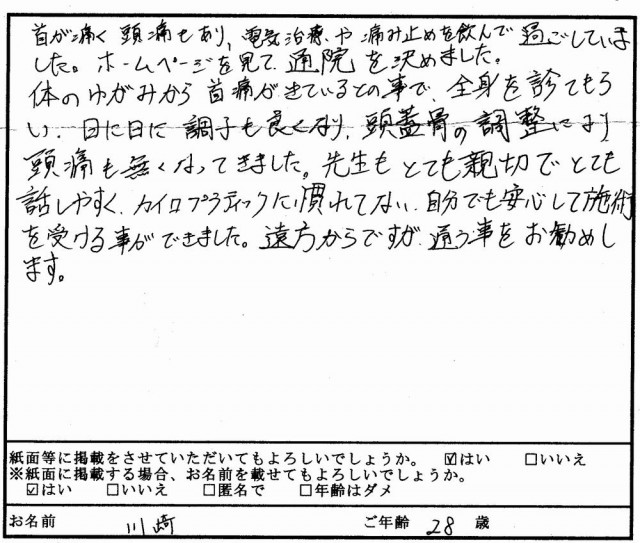 首が痛く頭痛もあり、電気治療や痛み止めを飲んで過ごしていま
した。ホームページを見て通院を決めました。
体のゆがみから首痛がきているとの事で、全身を診てもら
い、日に日に調子も良くなり、頭蓋骨の調整により
頭痛も無くなってきました。先生もとても親切でとても
話しやすく、カイロプラティックに慣れてない、自分でも安心して施術
を受ける事ができました。遠方からですが、通う事をお勧めし
ます。
紙面等に掲載をさせていただいてもよろしいでしょうか。 ☑はい □いいえ
※紙面に掲載する場合、お名前を載せてもよろしいでしょうか。
☑はい □いいえ □匿名で □年齢はダメ
お名前 川崎 ご年齢 28 歳